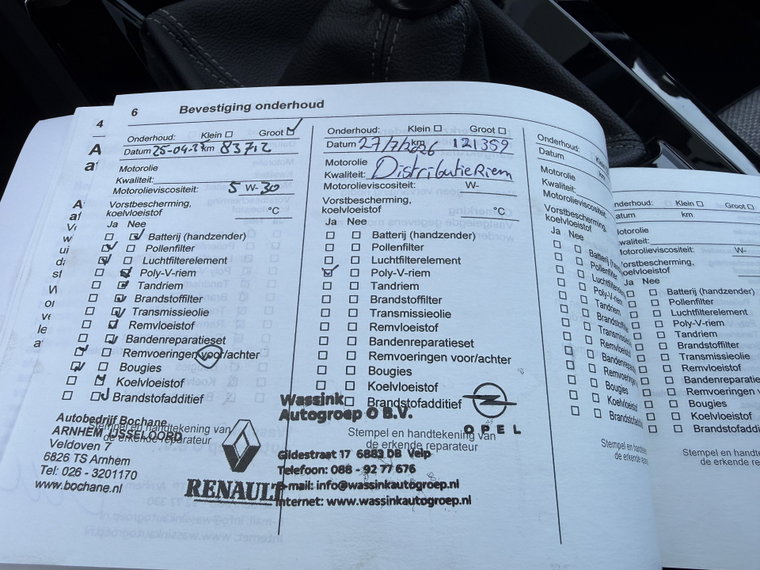 4
6 Bevestiging onderhoud
Onderhoud: Klein ☐ Groot ☑
Datum 25-04- km 83712
Motorolie
Kwaliteit:
Motorolieviscositeit: 5 W- 30
Vorstbescherming,
koelvloeistof °C
Ja Nee
Batterij (handzender)
Pollenfilter
Luchtfilterelement
Poly-V-riem
Tandriem
Brandstoffilter
Transmissieolie
Remvloeistof
Bandenreparatieset
Remvoeringen voor/achter
Bougies
Koelvloeistof
Brandstofadditief
Stempel en handtekening van
de erkende reparateur
Autobedrijf Bochane
ARNHEM IJSSELOORD
Veldoven 7
6826 TS Arnhem
Tel: 026 - 3201170
www.bochane.nl
RENAULT
Onderhoud: Klein ☐ Groot ☐
Datum 27/7/2026 km 121359
Motorolie
Kwaliteit: DistributieRiem
Motorolieviscositeit: W-
Vorstbescherming,
koelvloeistof °C
Ja Nee
Batterij (handzender)
Pollenfilter
Luchtfilterelement
Poly-V-riem
Tandriem
Brandstoffilter
Transmissieolie
Remvloeistof
Bandenreparatieset
Remvoeringen voor/achter
Bougies
Koelvloeistof
Brandstofadditief
Stempel en handtekening van
de erkende reparateur
Wassink
Autogroep B.V.
OPEL
Gildestraat 17 6883 DB Velp
Telefoon: 088 - 92 77 676
E-mail: info@wassinkautogroep.nl
Internet: www.wassinkautogroep.nl
Onderhoud:
Datum
Motorolie
Kwaliteit:
Motorolieviscositeit:
Vorstbescherming,
koelvloeistof
Ja Nee
Batterij (handz
Pollenfilter
Luchtfilterele
Poly-V-riem
Tandriem
Brandstoffil
Transmissi
Remvloeist
Bandenrepa
Remvoering
Bougies
Koelvloeist
Brandstofad
Stempel en ha
de erkend
Onderhoud: Klein ☐ Groot ☐
atum km
Motorolie
Kwaliteit:
Motorolieviscositeit: W-
Vorstbescherming,
koelvloeistof °C
Ja Nee
Batterij (handzender)
Pollenfilter
Luchtfilterelement
Poly-V-riem
Tandriem
Brandstoffilter
Transmissieolie
Remvloeistof
Bandenreparatieset
Remvoeringen
Bougies
Koelvloeistof
Brandstofadditief
Stempel en handtekening
de erkende reparateur